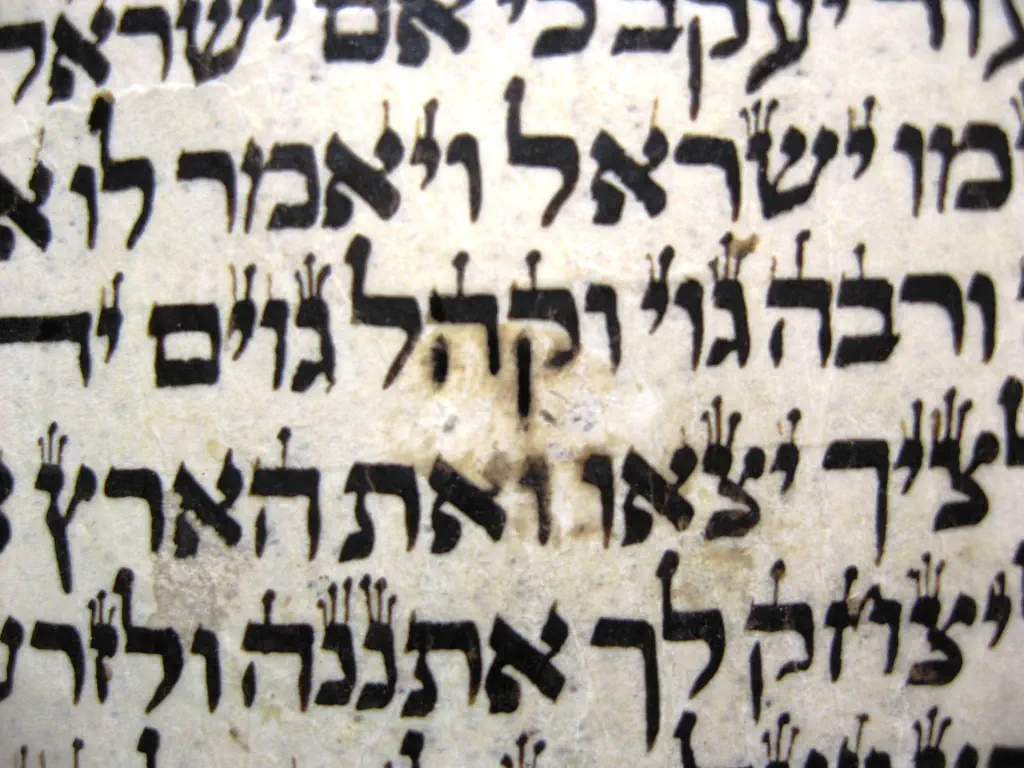 עוד יעקב כי אם ישראל
מו ישראל ויאמר לו א
ורבה גוי וקהל גוים יה
לציך יצאו ואת הארץ
יצחק לך אתננה ולזרע